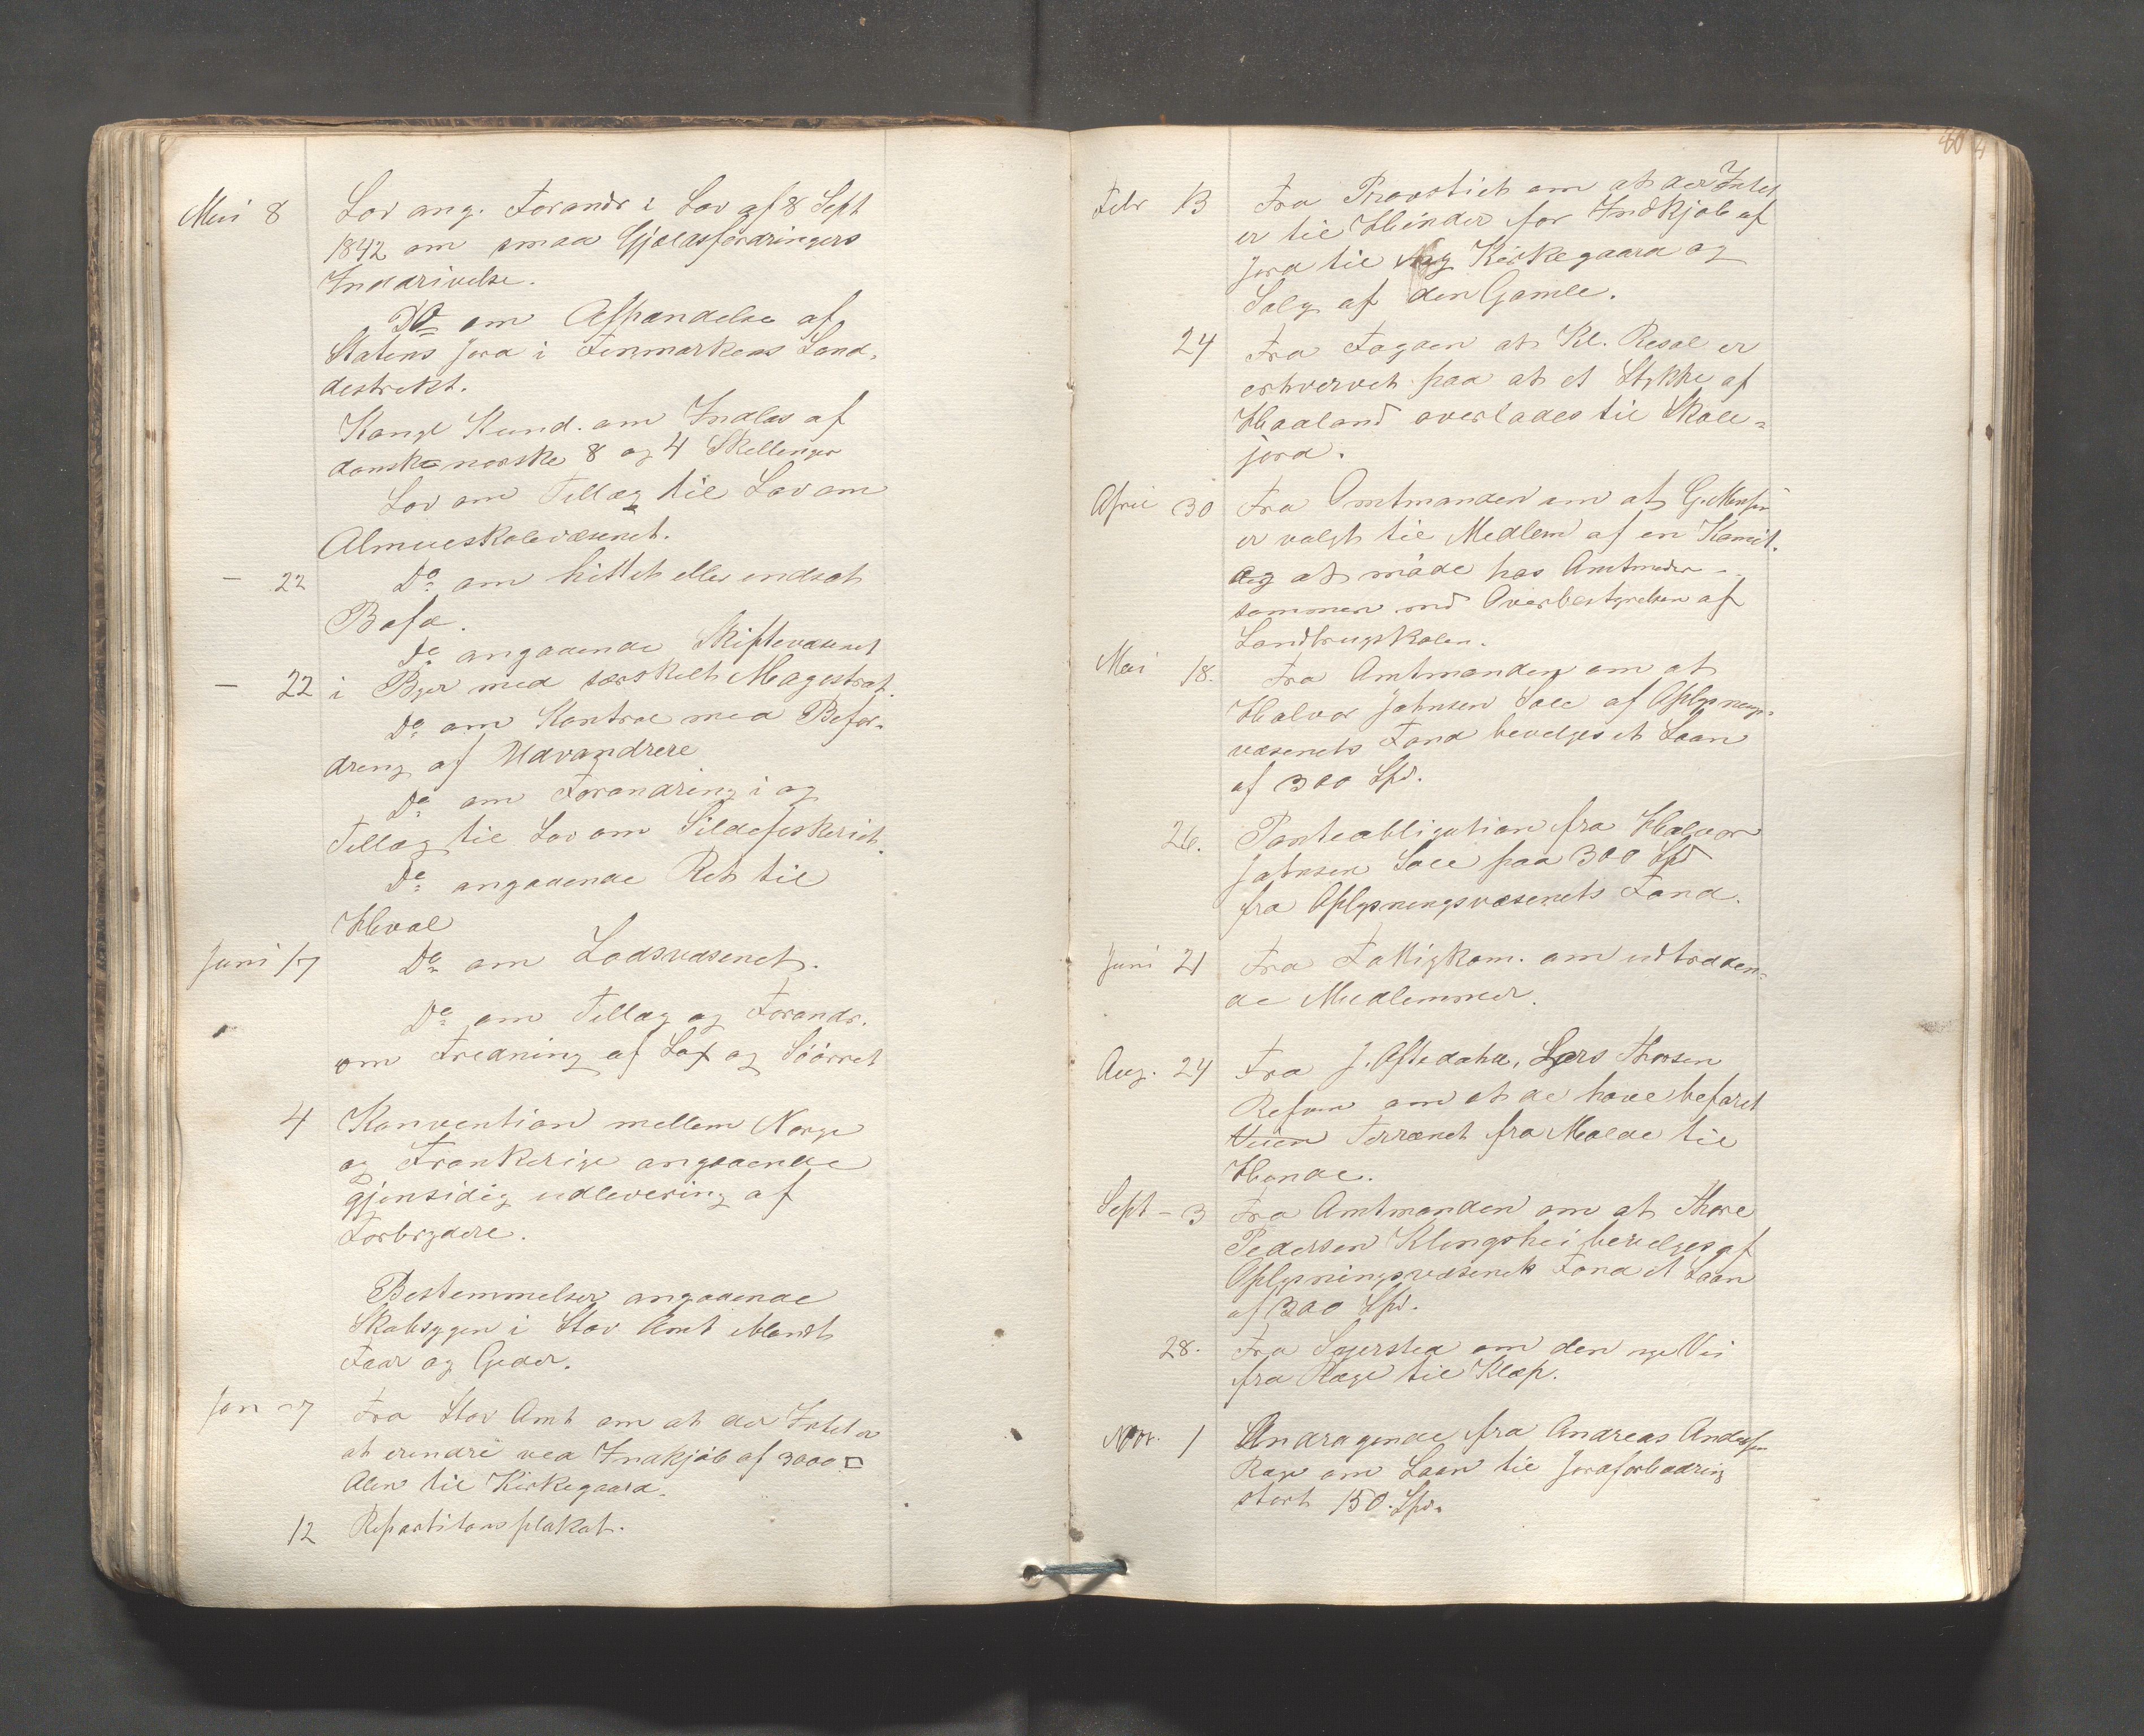 Mai 8 Lov ang. Forandr i Lov af 8 Sept
1842 om smaa Gjældsfordringers
Inddrivelse.
Do om Afhændelse af
Statens Jord i Finmarkens Land-
destrikt.
Kongl Kund. om Indløs af
dansk-norske 8 og 4 Skillinger
Lov om Tillæg til Lov om
Almueskolevæsenet.
— 22 Do om hittet eller indsat
Bofæ.
Do angaaende Skiftevæsenet
— 22 i Byer med særskilt Magestrat.
Do om Kontrol med Befor-
dring af Udvandrere
Do om Forandring i og
Tillæg til Lov om Sildefiskeriet.
Do angaaende Ret til
Hval
Juni 17 Do om Lodsvæsenet.
Do om Tillæg og Forandr.
om Fredning af Lax og Söörret
4 Konvention mellem Norge
og Frankerige angaaende
gjensidig udlevering af
Forbrydere.
Bestemmelser angaaende
Skabsygen i Stav Amt blandt
Faar og Geder.
Jan 7 Fra Stav Amt om at der Intet er
at erindre ved Indkjöb af 3000 □
Alen til Kirkegaard.
12 Repartitionsplakat.
40
Febr 13 Fra Provstiet om at der Intet
er til Hinder for Indkjøb af
Jord til Ny Kirkegaard og
Salg af den Gamle.
24 Fra Fogden at Kl. Resol er
erhvervet paa at et Stykke af
Haaland overlades til Skole-
jord.
April 30 Fra Amtmanden om at G.
er valgt til Medlem af en Komit.
og at möde hos Amtmanden
sammen med Overbestyrelsen af
Landbrugskolen.
Mai 18. Fra Amtmanden om at
Halvor Johnsen Sæle af Oplysnings-
væsenets Fond bevilges et Laan
af 300 Spd.
26. Panteobligation fra Halvor
Johnsen Sæle paa 300 Spd
fra Oplysningsvæsenets Fond.
Juni 21 Fra Fattigkom. om udtræden-
de Medlemmer.
Aug. 24 Fra J. Aftedahl, Lars Thorsen
Refsnes om at de have befaret
Veien Terrænet fra Malde til
Hande.
Sept - 3 Fra Amtmanden om at Thore
Pedersen Klingshei bevilges af
Oplysningsvæsenets Fond et Laan
af 300 Spd.
28. Fra om den nye Vei
fra Ræge til Klæp.
Nov. 1 Andragende fra Andreas Andersen
Ræge om Laan til Jordforbedring
stort 150. Spd.